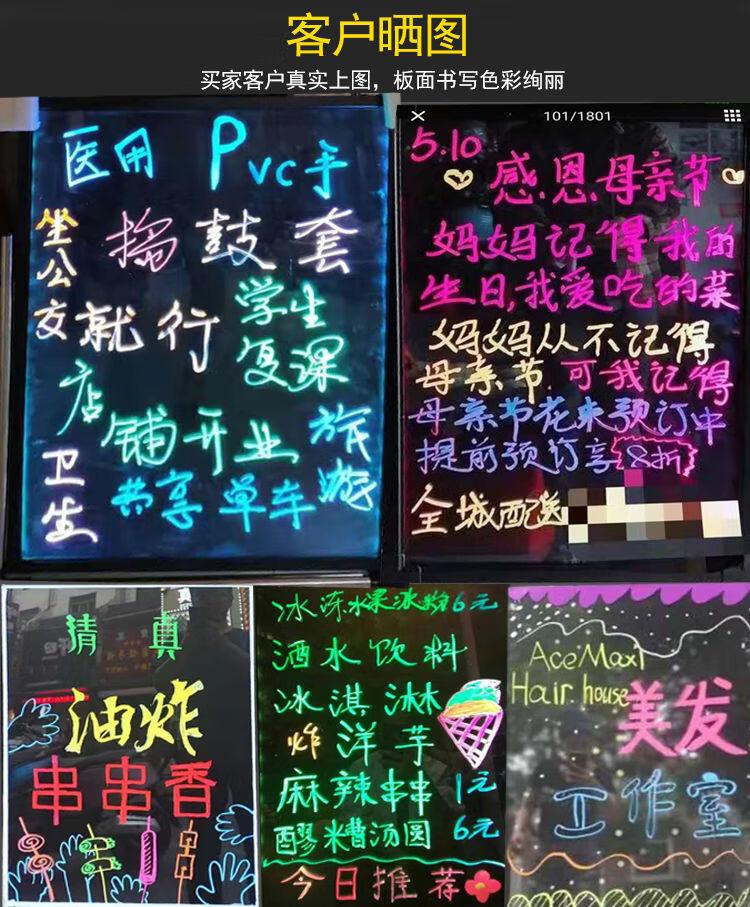 客户晒图
买家客户真实上图，板面书写色彩绚丽
医用 Pvc手
捣鼓套
坐公交
就行
学生
复课
店
铺开业
旅游
卫生
共享单车
101/1801
5.10
感恩母亲节
妈妈记得我的
生日,我爱吃的菜
妈妈从不记得
母亲节.可我记得
母亲节花束预订中
提前预订享8折
全城配送
清真
油炸
串串香
冰冻水果冰粉6元
酒水饮料
冰淇淋
炸洋芋
麻辣串串1元
醪糟汤圆6元
今日推荐
AceMaxi
Hair house
美发
工作室